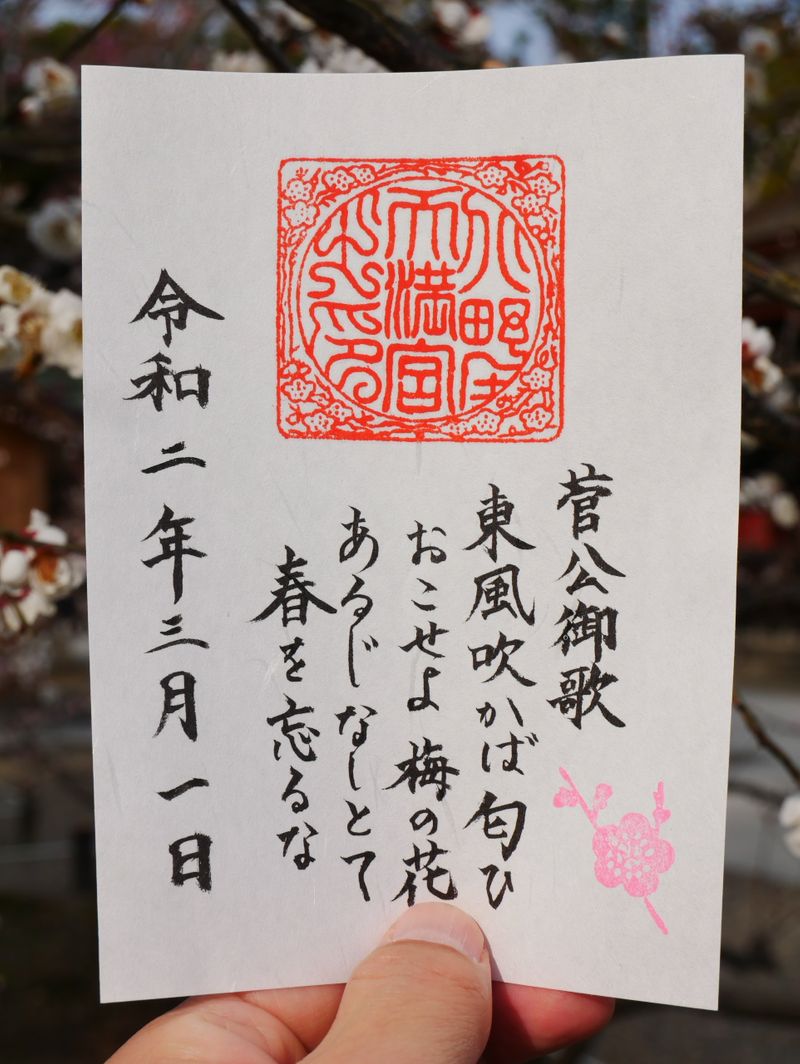 天満宮
菅公御歌
東風吹かば匂ひ
おこせよ 梅の花
あるじなしとて
春を忘るな
令和二年三月一日